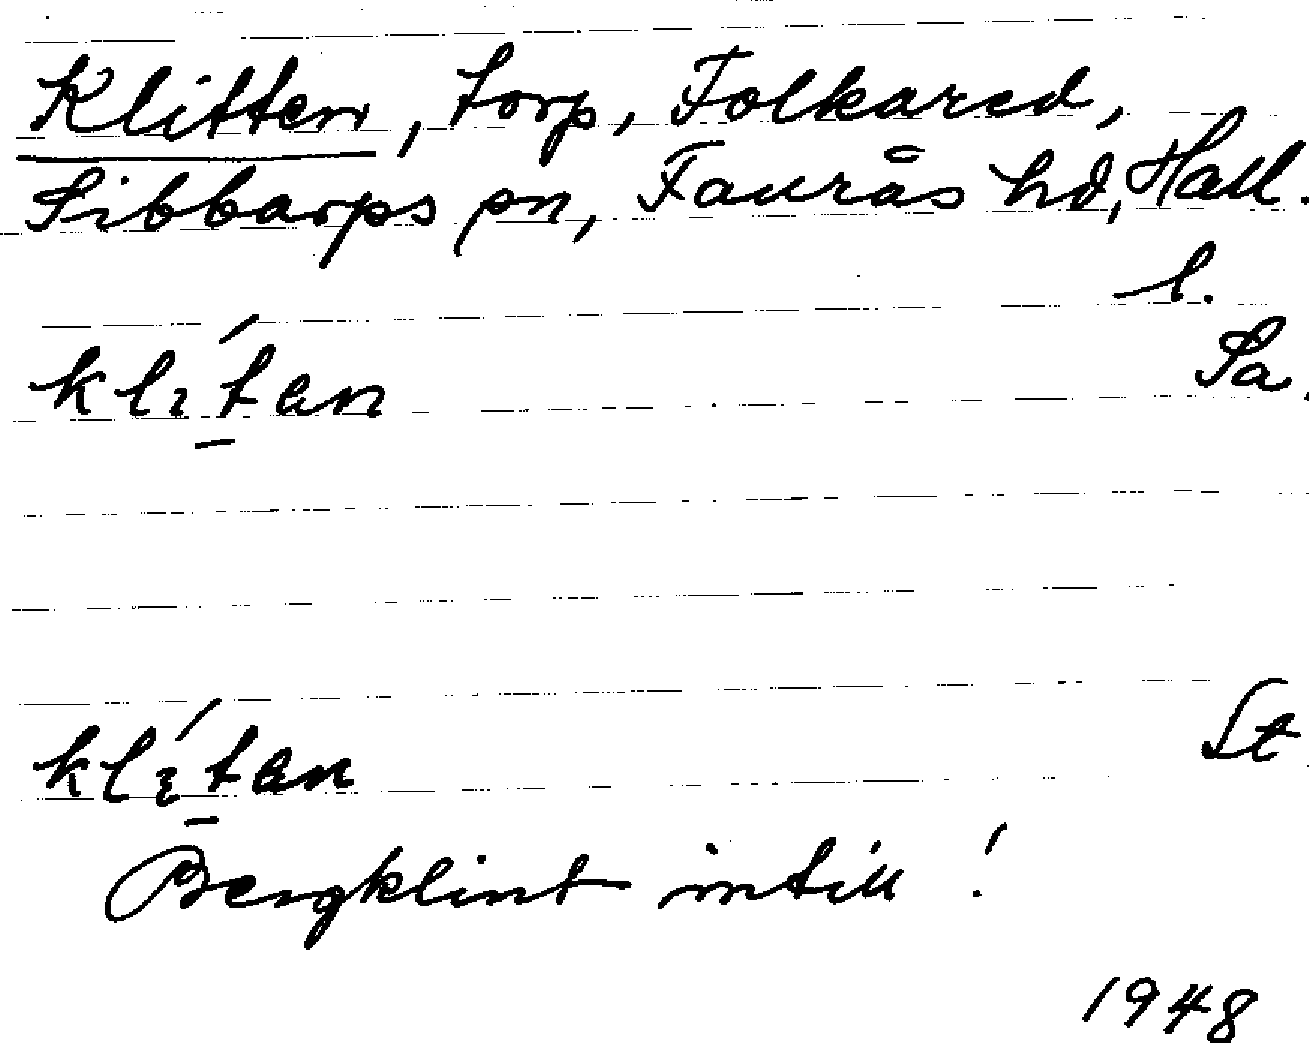 Klitten, torp, Folkared,
Sibbarps sn, Faurås hd, Hall.
l.
Sa.
klɩ́t̲an
St
klɩ́t̲an
Bergklint intill!
1948